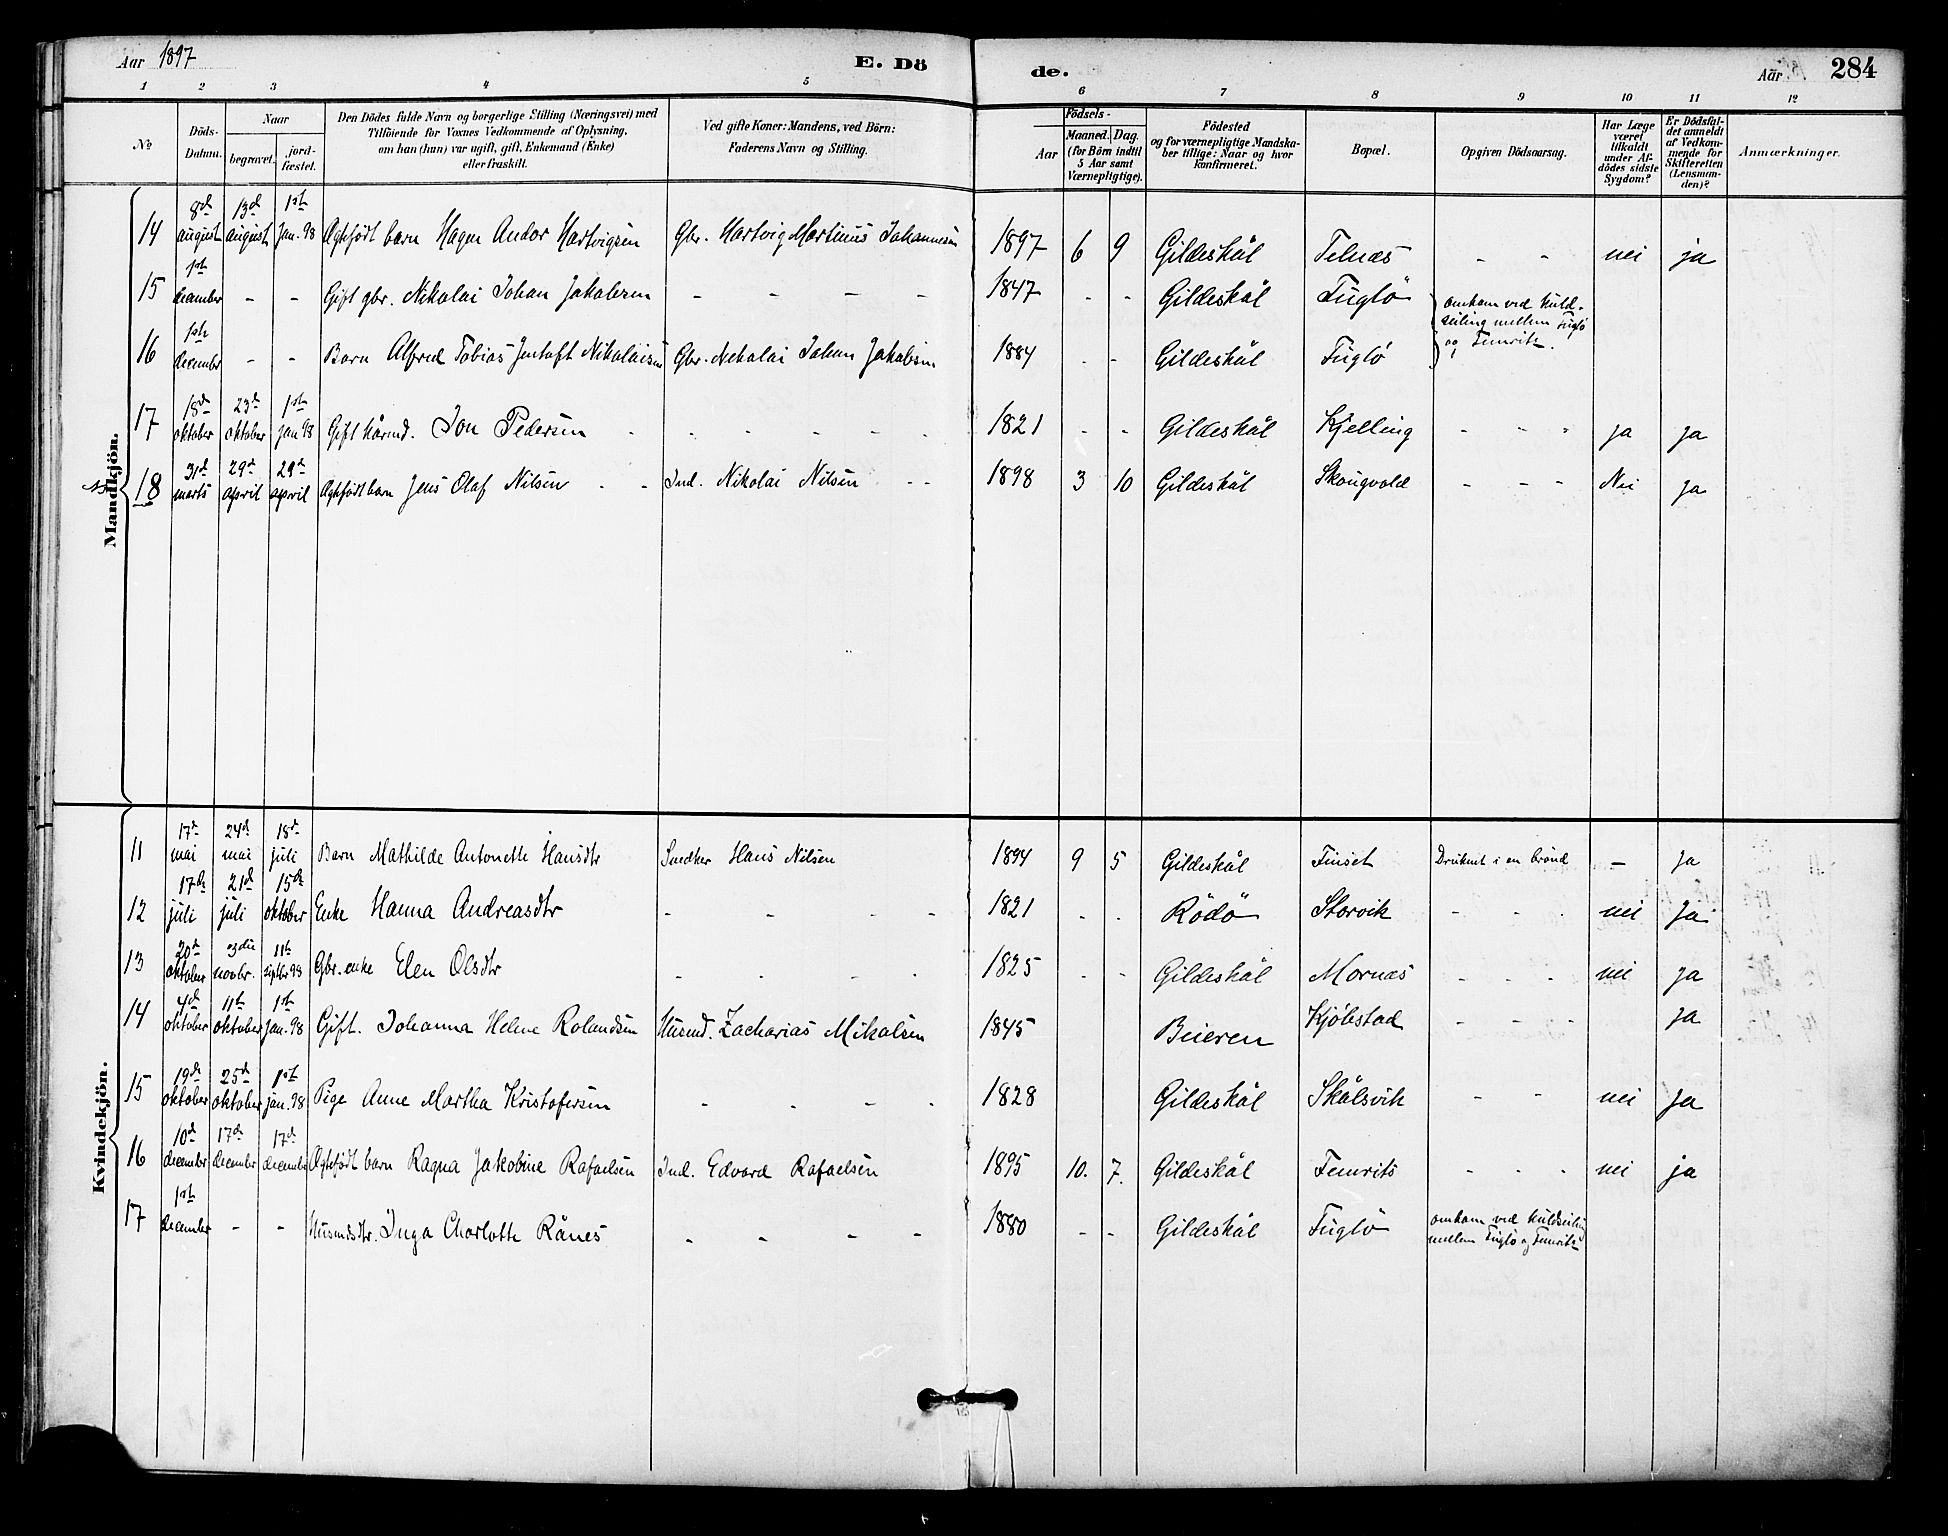 Aar 1897 E. Dö de. Aar 284
1 2 3 4 5 6 7 8 9 10 11 12
No
Döds-Datum.
Naar
begravet.
jord-fæstet.
Den Dödes fulde Navn og borgerlige Stilling (Næringsvei) med
Tilföiende for Voxnes Vedkommende af Oplysning,
om han (hun) var ugift, gift, Enkemand (Enke)
eller fraskilt.
Ved gifte Koner: Mandens, ved Börn:
Faderens Navn og Stilling.
Födsels-
Aar
Maaned. Dag.
(for Börn indtil
5 Aar samt
Værnepligtige).
Födested
og for værnepligtige Mandska-
ber tillige: Naar og hvor
konfirmeret.
Bopæl.
Opgiven Dödsaarsag.
Har Læge
været
tilkaldt
under Af-
dödes sidste
Sygdom?
Er Dödsfal-
det anmeldt
af Vedkom-
mende for
Skifteretten
(Lensman-
den)?
Anmærkninger.
Mandkjön.
14 8d august 13d august 1ste Jan. 98 Ægtefödt barn Hagen Andor Hartvigsen Gbr. Hartvig Martinus Johannesen 1897 6 9 Gildeskål Telnæs - - nei ja
15 1ste december - - Gift gbr. Nikolai Johan Jakobsen - - - - 1847 - - Gildeskål Fuglö omkom ved kuld-
seiling mellem Fuglö
og Femris.
16 1ste december - - Barn Alfred Tobias Jentoft Nikolaisen Gbr. Nikolai Johan Jakobsen 1884 - - Gildeskål Fuglö
17 18d oktober 23d oktober 1ste jan 98 Gift kårmd. Jon Pedersen - - - - - 1821 - - Gildeskål Kjelling - - - ja ja
18 31d marts 29d april 29d april Ægtefödt barn Jens Olaf Nilsen - - Ind. Nikolai Nilsen - - 1898 3 10 Gildeskål Skougvold - - - Nei ja
Kvindekjön.
11 17d mai 24d mai 18d juli Barn Mathilde Antonette Hansdtr Snedker Hans Nilsen 1894 9 5 Gildeskål Finset Druknet i en brönd - ja
12 17de juli 21d juli 15de oktober Enke Hanna Andreasdtr - - - - 1821 - - Rödö Storvik - - - nei ja
13 20d oktober 3die novbr. 11te septbr 98 Gbr. enke Elen Olsdtr - - - - 1825 - - Gildeskål Mornæs - - - nei ja
14 4d oktober 11te oktober 1ste jan. 98 Gift. Johanna Helene Rolandsen Husmd. Zacharias Mikalsen 1845 Beieren Kjöbstad - - - ja
15 19de oktober 25d oktober 1ste jan. 98 Pige Anne Martha Kristofersen - - - - 1828 Gildeskål Skålsvik - - nei ja
16 10d december 17de december 17d december Ægtefödt barn Ragna Jakobine Rafaelsen Ind. Edvard Rafaelsen 1895 10. 7. Gildeskål Femris - - - nei ja
17 1ste december - - Husmdsdtr. Inga Charlotte Rånes - - - - 1880 - - Gildeskål Fuglö omkom ved kuldseiling
mellem Fuglö og Femris